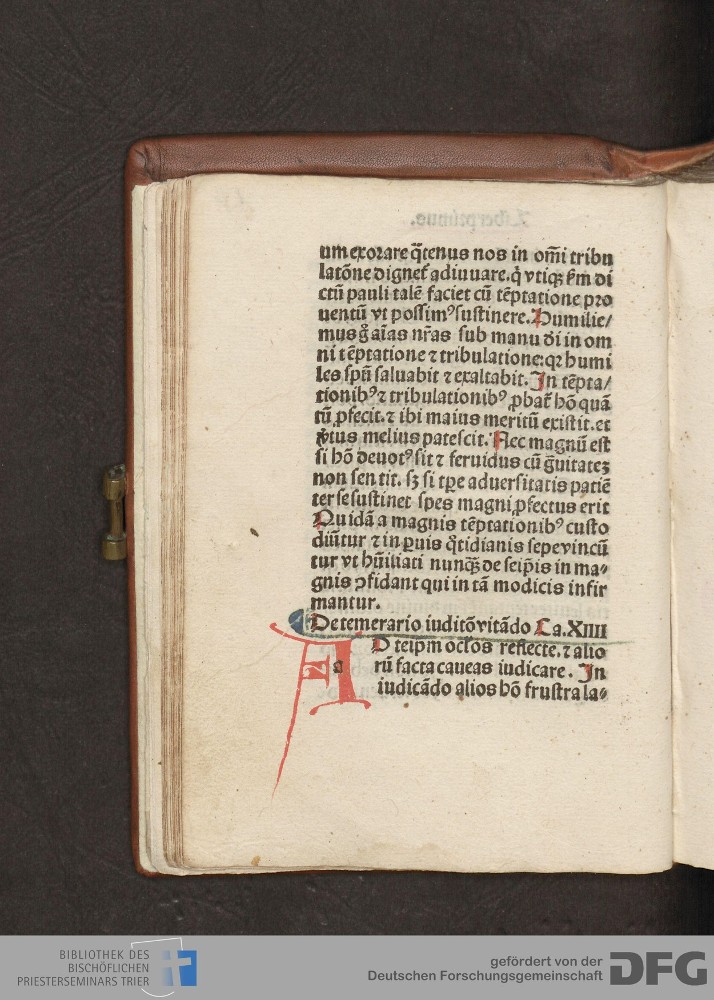 um exorare q̄tenus nos in om̄i tribu
latōne dignet᷑ adiuuare. q̇ vtiqꝫ ẜm di
ctū pauli talē faciet cū tēptatione pro
uentū vt possimꝰ sustinere. Humilie/
mus gͦ aīas nr̄as sub manu dī in om
ni tēptatione ⁊ tribulatione: qꝛ humi
les spū saluabit ⁊ exaltabit. In tēpta/
tionibꝰ ⁊ tribulationibꝰ ꝓbat᷑ hō quā
tū ꝓfecit. ⁊ ibi maius meritū existit. et
v̓tus melius patescit. Nec magnū est
si hō deuotꝰ sit ⁊ feruidus cū g̓uitatez
non sentit. sꝫ si tꝑe aduersitatis patiē
ter se sustinet spes magni ꝓfectus erit
Quidā a magnis tēptationibꝰ custo
diūtur ⁊ in ꝑuis q̄tidianis sepe vincū
tur vt hūiliati nunqꝫ̄ de seip̄is in ma⸗
gnis ꝯfidant qui in tā modicis infir
mantur.
De temerario iuditō vitādo Ca. XIIII
A D teip̄m ocl̓os reflecte. ⁊ alio
rū facta caueas iudicare. In
iudicādo alios hō frustra la⸗
BIBLIOTHEK DES
BISCHÖFLICHEN
PRIESTERSEMINARS TRIER
gefördert von der
Deutschen Forschungsgemeinschaft DFG